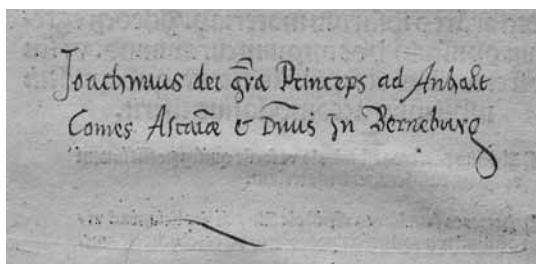 Joachimus dei gr̄a Princeps ad Anhalt
Comes Ascaniæ & Dn̄us In Berneburg